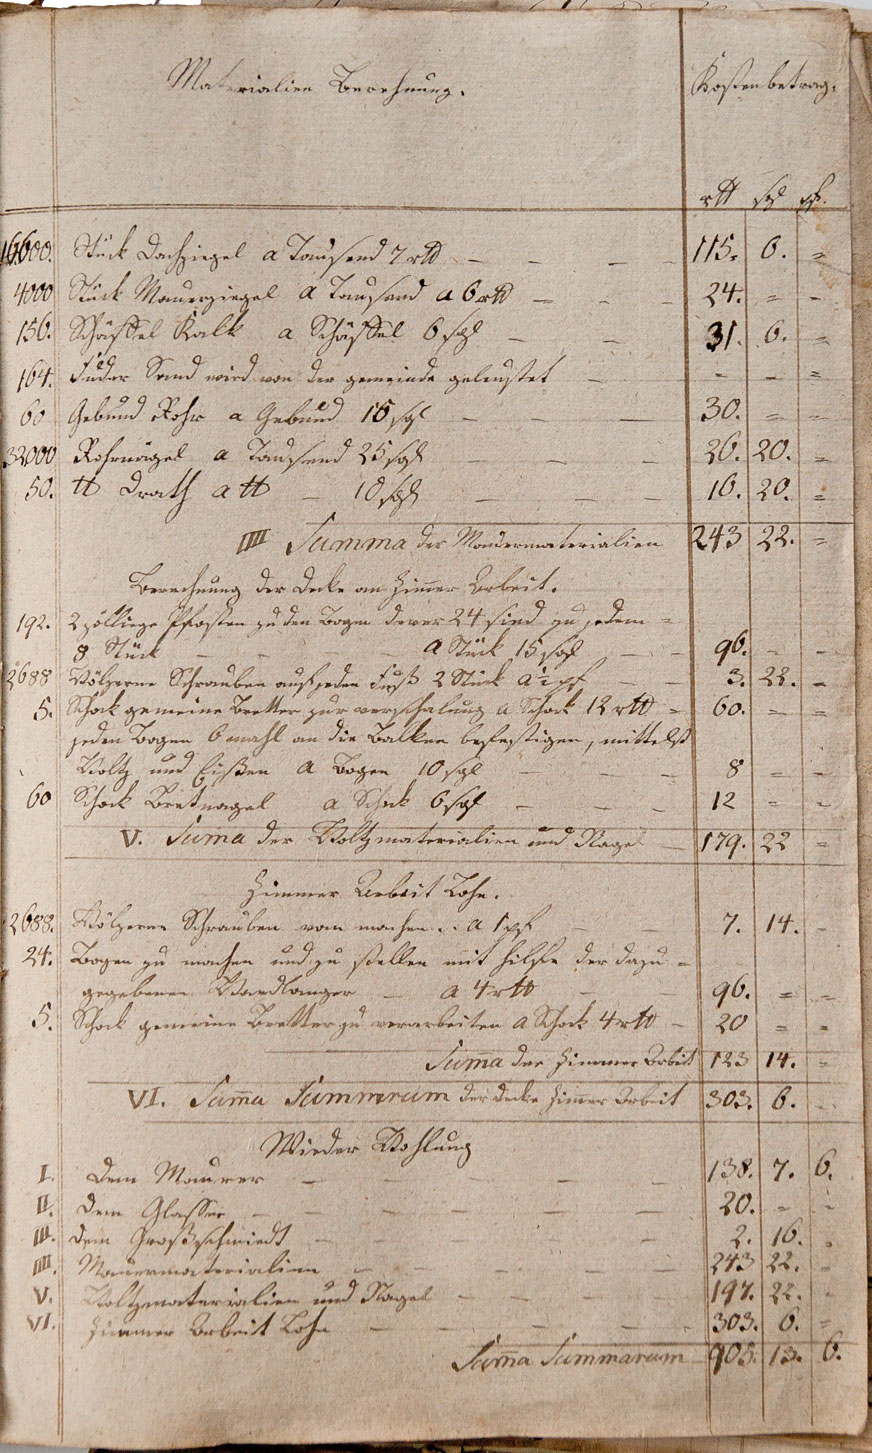 Materialien Berechnung. Kostenbetrag.
rtl sgl pf.
16600. Stück Dachziegel a Tausend 7 rtl — — — 115. 6. =
4000 Stück Mauerziegel a Tausend a 6 rtl — — — 24. = =
156. Schäffel Kalk a Schäffel 6 sgl — — 31. 6. =
164. Fuder Sand wird von der gemeinde geleustet — - - =
60 Gebund Rohr a Gebund 15 sgl — — 30. = =
32000 Rohrnägel a Tausend 25 sgl — — 26. 20. =
50. tt Drath a tt — 10 sgl — — — 16. 20. =
IIII Summa der Mauermaterialien 243 22. =
Berechnung der Decke an Zimer Arbeit.
192. 2 zöllige Pfosten zu den Bogen derer 24 sind zu jedem =
8 Stück — — — a Stück 15 sgl — — 96. - -
2688 Hölzerne Schrauben auf jeden Fuß 2 Stück a ½ pf — — 3. 22. =
5. Schock gemeine Bretter zur verschalung a Schock 12 rtl = 60. = =
jeden Bogen 6 mahl an die Balken befestigen, mittelst
Holtz und Eißen a Bogen 10 sgl — — — 8 = -
60 Schock Bretnagel a Schock 6 sgl — — — 12 = =
V. Suma der Holtzmaterialien und Nagel — 179. 22 =
Zimmer Arbeit Lohn.
2688. Hölzerne Schrauben machen .. a 1 pf — — 7. 14. -
24. Bogen zu machen und zu stellen mit hilfe der dazu =
gegebenen Handlanger — a 4 rtl — — 96. = =
5. Schock gemeine Bretter zu verarbeiten a Schock 4 rtl — 20 = =
Suma der Zimmer Arbeit 123 14. =
VI. Suma Summrum der Decke Zimer Arbeit 303. 6. -
Wieder Hohlung
I. Dem Maurer — — — — 138. 7. 6.
II. Dem Glasser — — — — 20. - -
III. Dem Großschmiedt — — — — 2. 16. =
IIII. Mauermaterialien — — — — 243 22. =
V. Holtzmaterialien und Nagel — — — — 197. 22. -
VI. Zimmer Arbeit Lohn — — — — 303. 6. =
Suma Summarum 905. 13. 6.